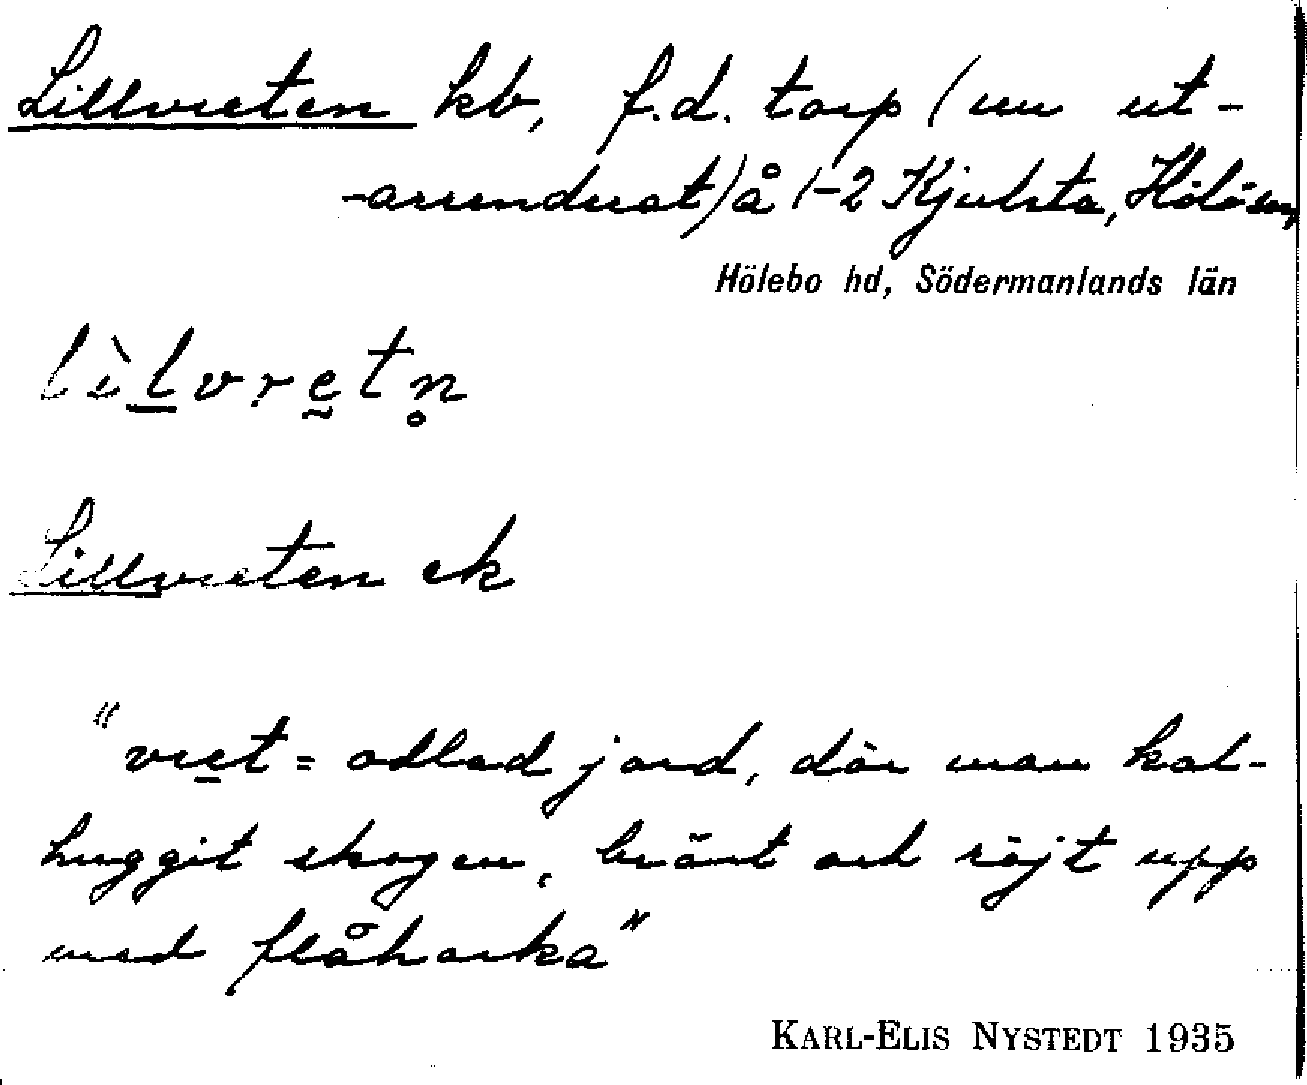 Lillvreten kb, f.d. torp (nu ut-
-arrenderat) å 1-2 Kjulsta, Hölö sn,
Hölebo hd, Södermanlands län
lìlvretn̥
Lillvreten ek
"vret = odlad jord, där man kal-
huggit skogen, bränt och röjt upp
med flåharka"
KARL-ELIS NYSTEDT 1935